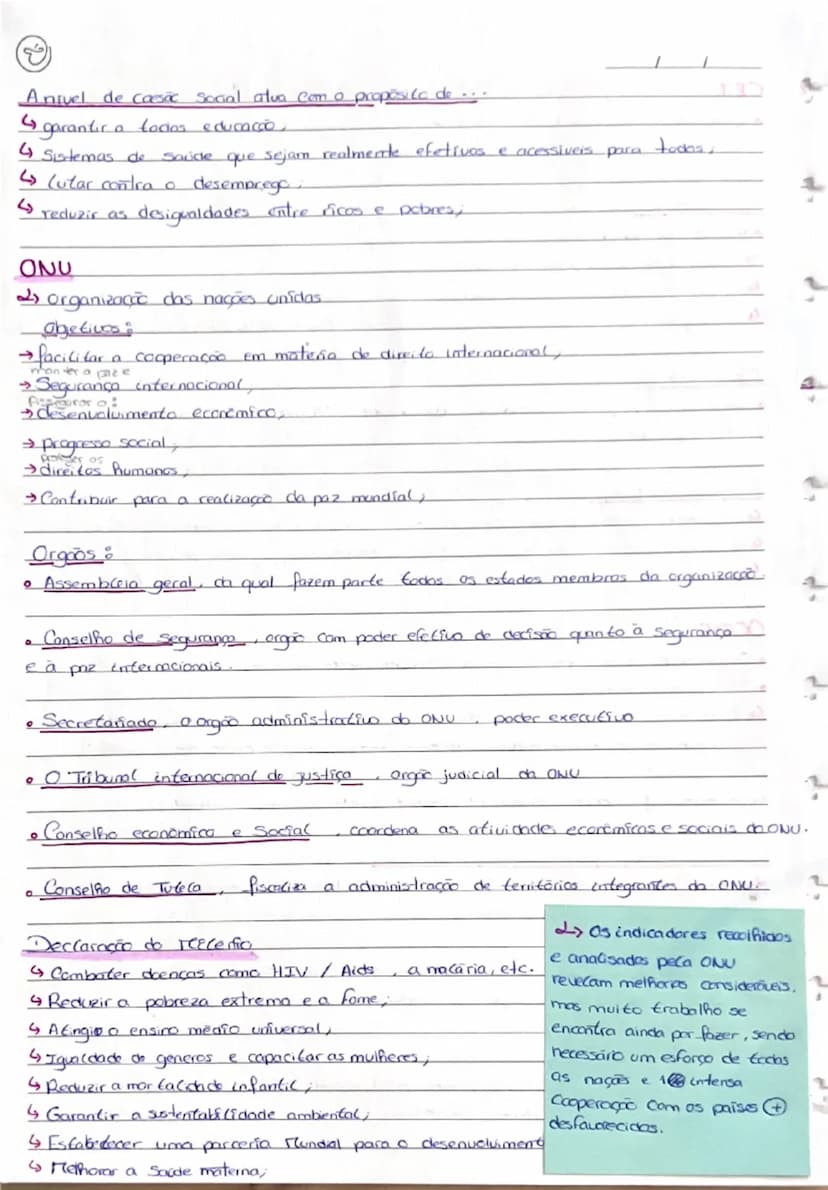 A nivel de coesão social atua com o propósito de ...
↳ garantir a todos educação,
↳ Sistemas de saúde que sejam realmente efetivos e acessíveis para todos,
↳ lutar contra o desemprego;
↳ reduzir as desigualdades entre ricos e pobres;
ONU
↳ Organização das nações unidas
Objetivos:
→ facilitar a cooperação em matéria de direito internacional,
manter a paz e
→ Segurança internacional,
Assegurar o:
→ desenvolvimento económico,
→ progresso social,
proteger os
→ direitos humanos,
→ Contribuir para a realização da paz mundial;
Orgãos:
• Assembleia geral, da qual fazem parte todos os estados membros da organização.
• Conselho de segurança, orgão com poder efetivo de decisão quanto à segurança
e à paz internacionais.
• Secretariado, o orgão administrativo da ONU, poder executivo
• O Tribunal internacional de justiça, orgão judicial da ONU
• Conselho económico e Social, coordena as atividades económicas e sociais da ONU.
• Conselho de Tutela, fiscaliza a administração de territórios integrantes da ONU.
Declaração do Milénio
↳ Combater doenças como HIV / Aids, a malária, etc.
↳ Reduzir a pobreza extrema e a fome;
↳ Atingir o ensino médio universal,
↳ Igualdade de generos e capacitar as mulheres;
↳ Reduzir a mortalidade infantil;
↳ Garantir a sustentabilidade ambiental;
↳ Estabelecer uma parceria Mundial para o desenvolviment
↳ Melhorar a Saúde materna;
↳ Os indicadores recolhidos
e analisados pela ONU
revelam melhoras consideráveis,
mas muito trabalho se
encontra ainda por fazer, sendo
necessário um esforço de todas
as nações e intensa
Cooperação com os países ⊕
desfavorecidos.